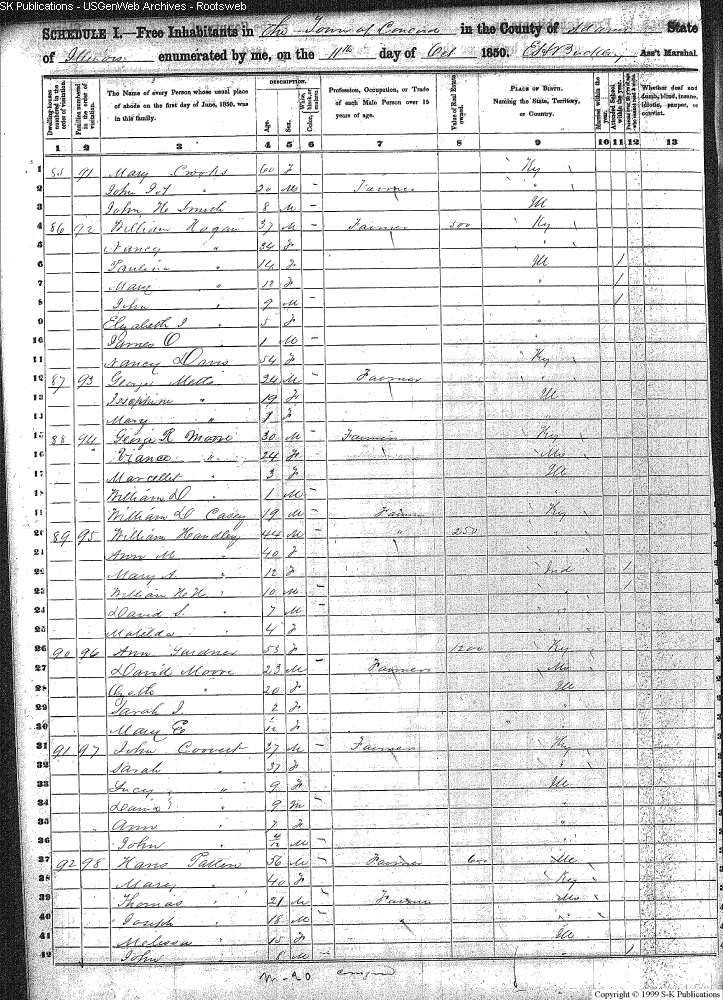 SK Publications - USGenWeb Archives - Rootsweb
SCHEDULE I.—Free Inhabitants in the Town of Concord in the County of Adams State
of Illinois enumerated by me, on the 11th day of Oct 1850. Ass't Marshal.
Dwelling-houses numbered in the order of visitation.
Families numbered in the order of visitation.
The Name of every Person whose usual place of abode on the first day of June, 1850, was in this family.
DESCRIPTION.
Age.
Sex.
Color, White, black, or mulatto.
Profession, Occupation, or Trade of each Male Person over 15 years of age.
Value of Real Estate owned.
PLACE OF BIRTH. Naming the State, Territory, or Country.
Married within the year.
Attended School within the year.
Whether deaf and dumb, blind, insane, idiotic, pauper, or convict.
1 2 3 4 5 6 7 8 9 10 11 12 13
1 91 Mary Crooks 60 F Ky
2 John " 20 M - Farmer "
3 John H 8 M - Ill
4 86 92 William Hogan 37 M - Farmer 500 Ky
5 Nancy " 34 F "
6 Paulina " 14 F Ill 1
7 Mary " 12 F " 1
8 John " 9 M - " 1
9 Elizabeth J " 5 F "
10 James O 1 M - "
11 Nancy Davis 54 F Ky
12 87 93 George 24 M - Farmer "
13 Josephine " 19 F Ill
14 Mary " 1 F "
15 88 94 George R Moore 30 M - Farmer Ky
16 " 24 F Mo
17 " 3 F Ill
18 William D " 1 M -
19 William D Casey 19 M - Farmer Ky
20 89 95 William Handley 44 M - " 250 "
21 Ann M " 40 F "
22 Mary A. " 12 F Ind 1
23 William H. H. " 10 M - " 1
24 David S. " 7 M - "
25 Matilda " 4 F "
26 90 96 Ann Gardner 53 F 1200 Ky
27 David Moore 23 M - Farmer Mo
28 " 20 F Ill
29 Sarah J. 2 F "
30 Mary E 1/12 F "
31 91 97 John Coovert 37 M - Farmer Ky
32 Sarah " 37 F "
33 Lucy " 9 F Ill
34 David " 9 M - "
35 Ann " 7 F "
36 John " 4/12 M - "
37 92 98 Hans Patten 56 M - Farmer 600
38 Mary " 40 F Ky
39 Thomas " 21 M - Farmer Mo
40 Joseph " 18 M - " "
41 Melissa " 15 F Ill
42 John " M - " 1
Copyright © 1999 S-K Publications